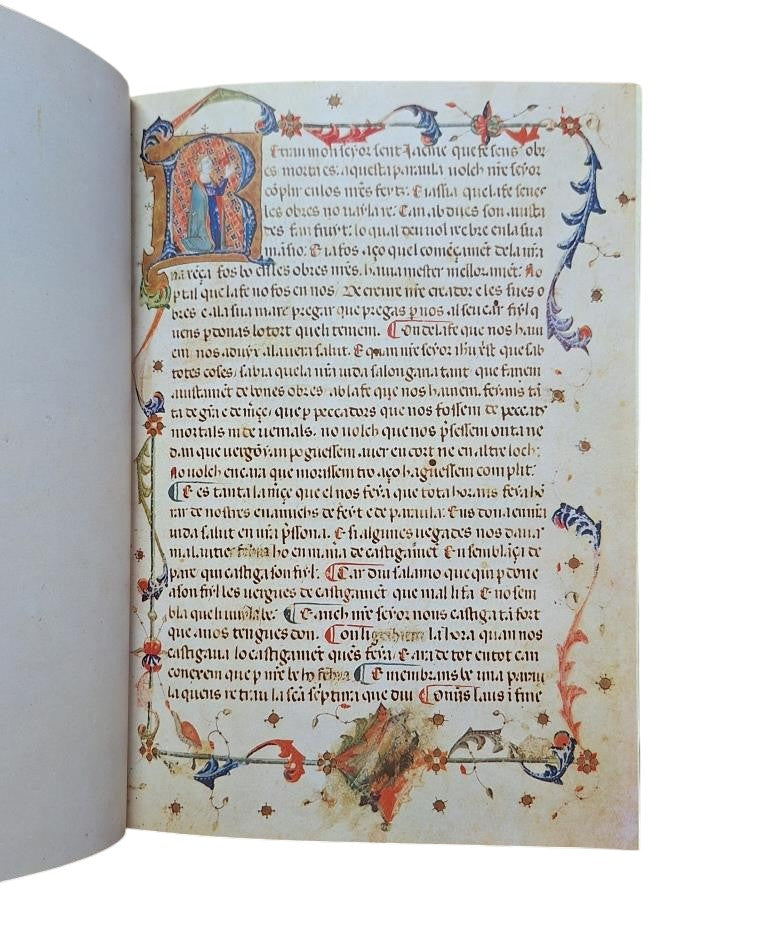 Retrau mon seyor sent Jacme que fe sens obr
es morta es: aquesta paraula volch nr̄e seyor
cōplir en los nr̄es feyts. E ia ssia que la fe senes
les obres no vayla re. Can abdues son aiusta
des fan fruyt: lo qual deu vol rebre en la sua
māsio: E ia fos aço quel començamēt de la nr̄a
naxēça fos bo en les obres nr̄es, hauia mester melloramēt: No
p̄ tal que la fe no fos en nos, de creure nr̄e creador e les sues o
bres e a la sua mare pregar que pregas p̄ nos al seu car fiyl q̄
uens p̄donas lo tort queli teniem. On de la fe que nos hau
iem, nos aduyx a la uera salut. E quan nr̄e seyor ih̄u xp̄st que sab
totes coses, sabia que la nr̄a uida salongaria tant que fariem
aiustamēt de bones obres ab la fe que nos hauiem. feyans tā
ta de gr̄a e de m̄çe, que p̄ peccadors que nos fossem de peccats
mortals ni de uenials. no uolch que nos p̄sessem onta ne
dan que uergōya n poguessem auer en cort ne en altre loch:
No uolch encara que morissem tro aço haguessem complit:
E es tanta la m̄çe que el nos feya que tota hora ns feya hō
rar de nostres enamichs de feyt e de paraula: Ens dona en nr̄a
uida salut en nr̄a p̄ssona. E si algunes uegades nos daua
malauties feya ho en mā de castigamēt En semblāça de
pare qui castiga son fiyl: Car diu salamo que qui p̄done
a son fiyl les uergues de castigament que mal li fa E no sem
bla queli uuyla be: E anch nr̄e seyor nons castiga tā fort
que a nos tengues don. On li grahiem la hora quan nos
castigaua lo castigamēt quēs feya: E ara de tot en tot can
conexem que p̄ nr̄e be ho feya E membrans be una paraū
la quens retrau la scā sc̄ptura que diu Om̄s laus ī fine